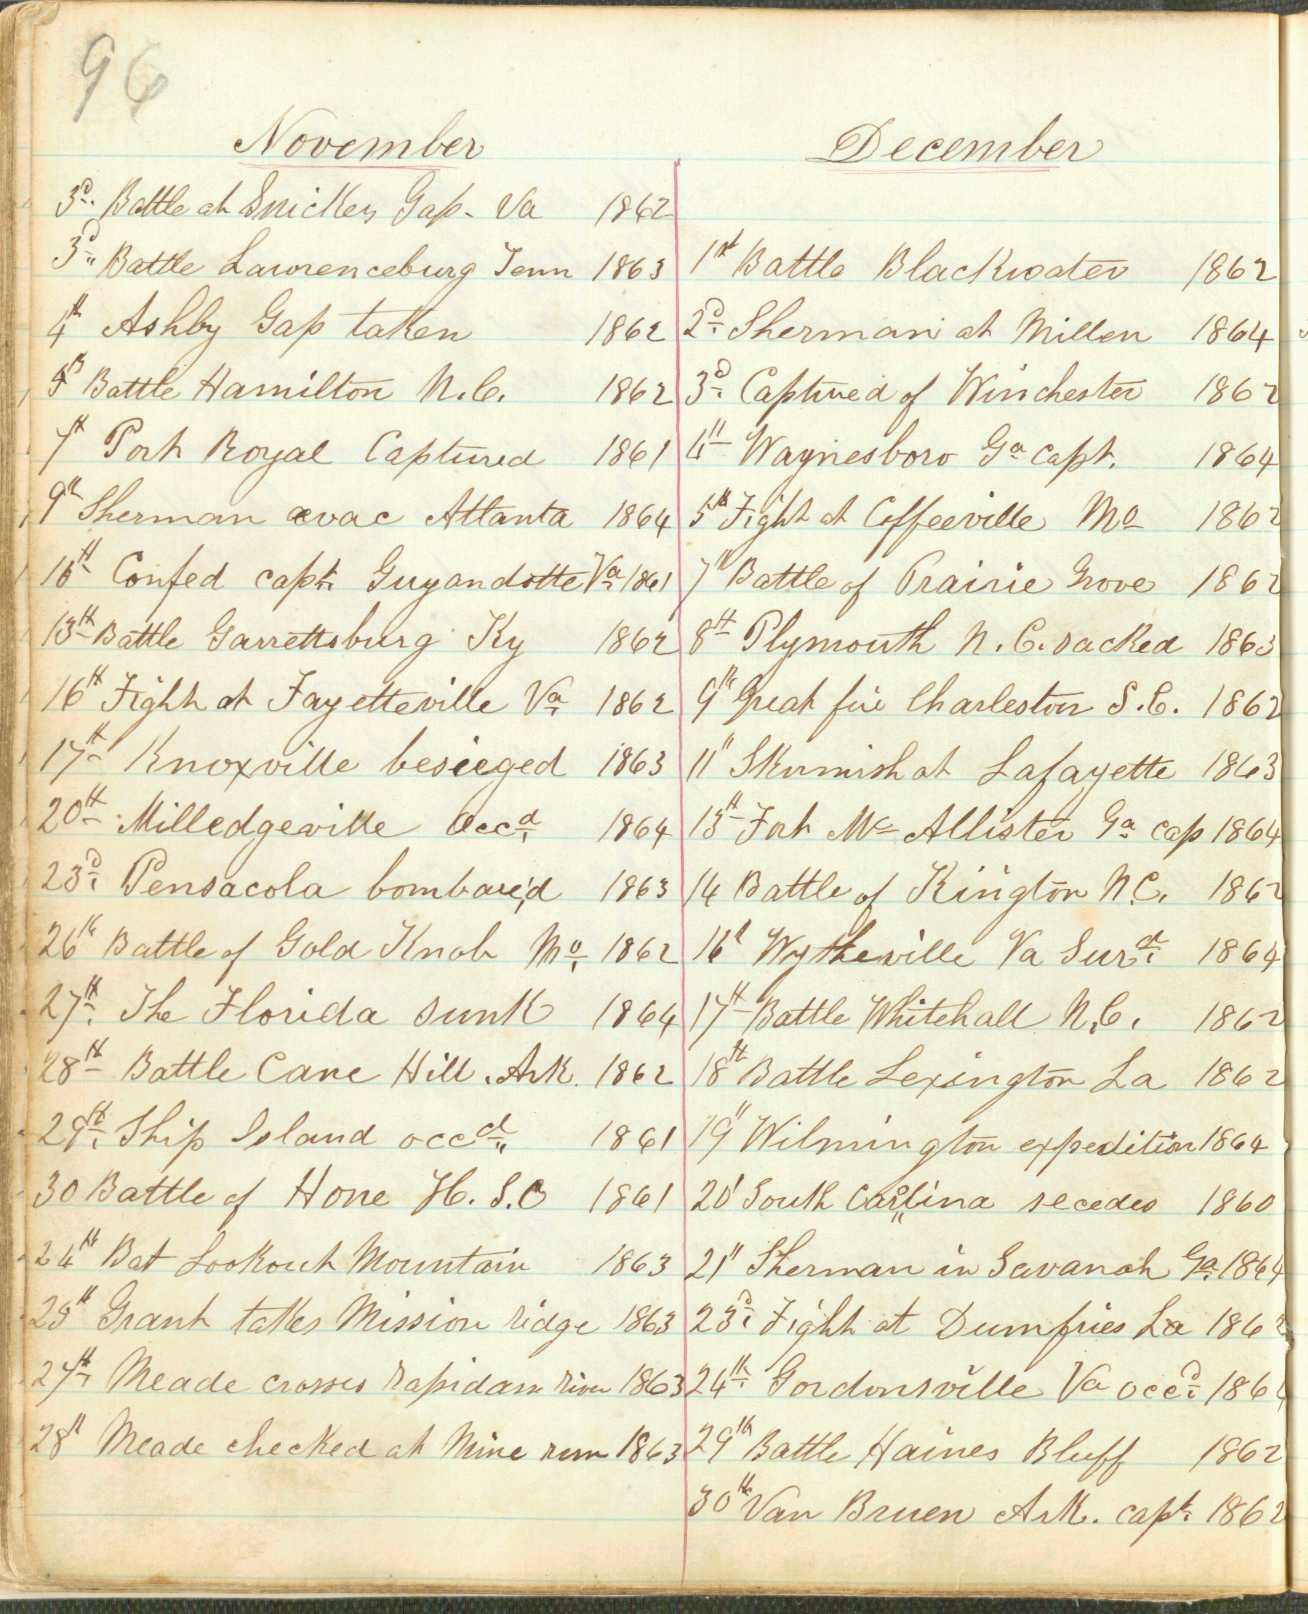 96
November
3d. Battle at Snickers Gap. Va 1862
3d. Battle Lawrenceburg Tenn 1863
4th Ashby Gap taken 1862
5th Battle Hamilton N.C. 1862
7th Port Royal Captured 1861
9th Sherman evac Atlanta 1864
10th Confed capt. Guyandotte Va. 1861
13th Battle Garrettsburg Ky 1862
16th Fight at Fayetteville Va. 1862
17th Knoxville besieged 1863
20th Milledgeville Occd. 1864
23d. Pensacola bombar'd 1863
26th Battle of Gold Knob Mo. 1862
27th. The Florida sunk 1864
28th Battle Cane Hill. Ark. 1862
29th. Ship Island occd. 1861
30 Battle of Hone H. S.C 1861
24th Bat Lookout Mountain 1863
25th Grant takes Mission ridge 1863
27th. Meade crosses rapidam river 1863
28th Meade checked at Mine run 1863
December
1st Battle Blackwater 1862
2d. Sherman at Millen 1864
3d. Captured of Winchester 1862
4th Waynesboro Ga capt. 1864
5th Fight at Coffeeville Mo 1862
7th Battle of Prairie Grove 1862
8th Plymouth N. C. sacked 1863
9th Great fire Charleston S.C. 1862
11" Skirmish at Lafayette 1863
13th Fort Mc Allister Ga. cap 1864
14 Battle of Kington N.C. 1862
16th Wytheville Va Surd. 1864
17th Battle Whitehall N.C. 1862
18th Battle Lexington La 1862
19" Wilmington expedition 1864
20' South Carolina secedes 1860
21" Sherman in Savanah Ga. 1864
23d. Fight at Dumfries La 1862
24th. Gordonsville Va occd. 186
29th Battle Haines Bluff 1862
30th Van Bruen Ark. capt. 1862